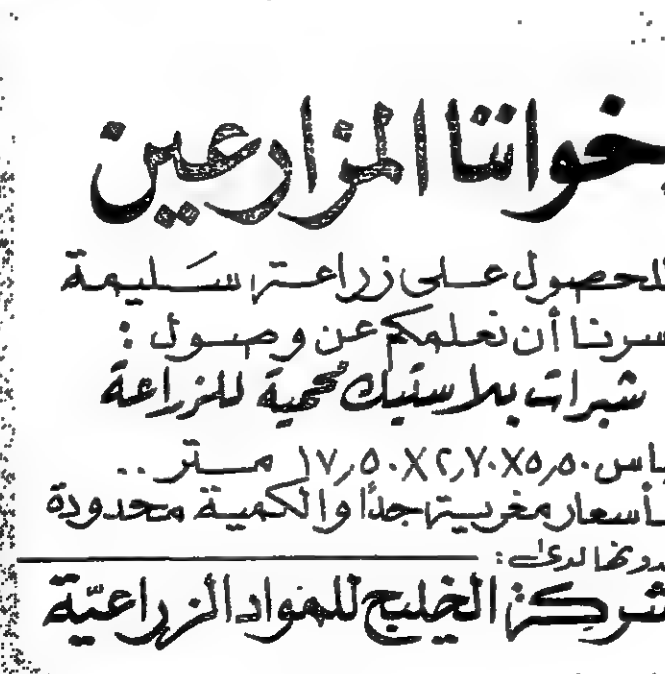 خواننا المزارعين
للحصول على زراعة سليمة
سرنا أن نعلمكم عن وصول :
شبرات بلاستيك محمية للزراعة
ياس ٥٫٥٠X٢٫٧٠X١٧٫٥٠ مستر ..
بأسعار مغرية جداً والكمية محدودة
دونها لدى :
شركة الخليج للمواد الزراعيّة